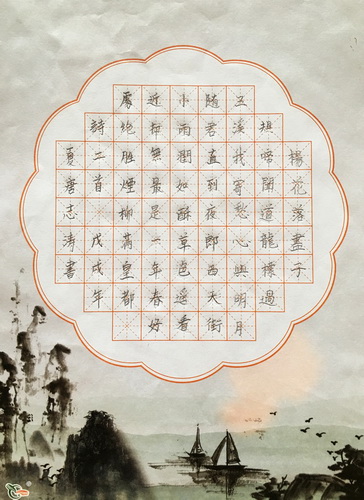 楊花落盡子
規啼聞道龍標過
五溪我寄愁心與明月
随君直到夜郎西天街
小雨潤如酥草色遥看
近却無最是一年春好
處绝胜煙柳滿皇都
詩二首戊戌年
夏唐志涛書